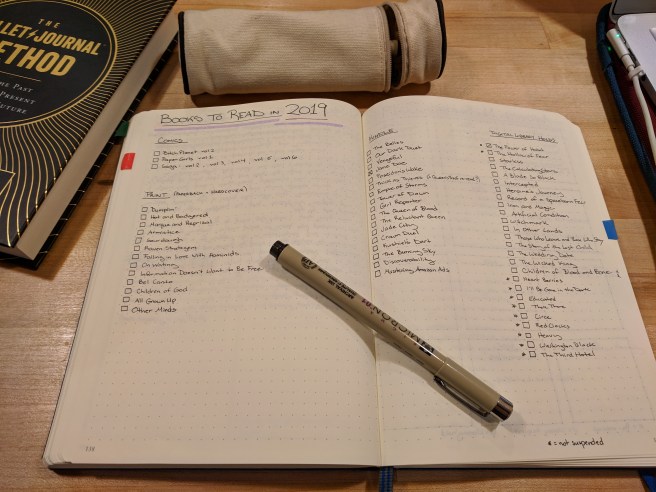 THE
BULLET JOURNAL
METHOD
THE PAST
PRESENT
FUTURE
BOOKS TO READ IN 2019
COMICS
Bitch Planet vol 2
Paper Girls vol 6
Saga - vol 2, vol 3, vol 4, vol 5, vol 6
PRINT (PAPERBACK + HARDCOVER)
Dumplin'
Hot and Badgered
Marque and Reprisal
Armistice
Swordheart
Poison
Falling in Love With Hominids
On Writing
Information Doesn't Want to Be Free
Bel Canto
Children of God
All Grown Up
Other Minds
The Belles
Our Dark Duet
Vengeful
Jane Doe
Trail of Lightning
Empire of Storms
Tower of Dawn
Girl Reporter
The Queen of Blood
The Reluctant Queen
Jade City
Crown Duel
The Burning Sky
Discoverability
Mastering Amazon Ads
DIGITAL LIBRARY HOLDS
The Power of Habit
The Philosopher's Flight
Starless
The Calculating Stars
A Blade So Black
Intercepted
Heroine's Journey
Record of a Spaceborn Few
Iron and Magic
Artificial Condition
Witchmark
In Other Lands
Those Who Leave and Those Who Stay
The Story of the Lost Child
The Wedding Date
The Wicked King
Children of Blood and Bone
* Heart Berries
* I'll Be Gone in the Dark
* Educated
* There There
* Circe
* Red Clocks
* Heavy
* Washington Black
* The Third Hotel
* = not suspended
MICRON